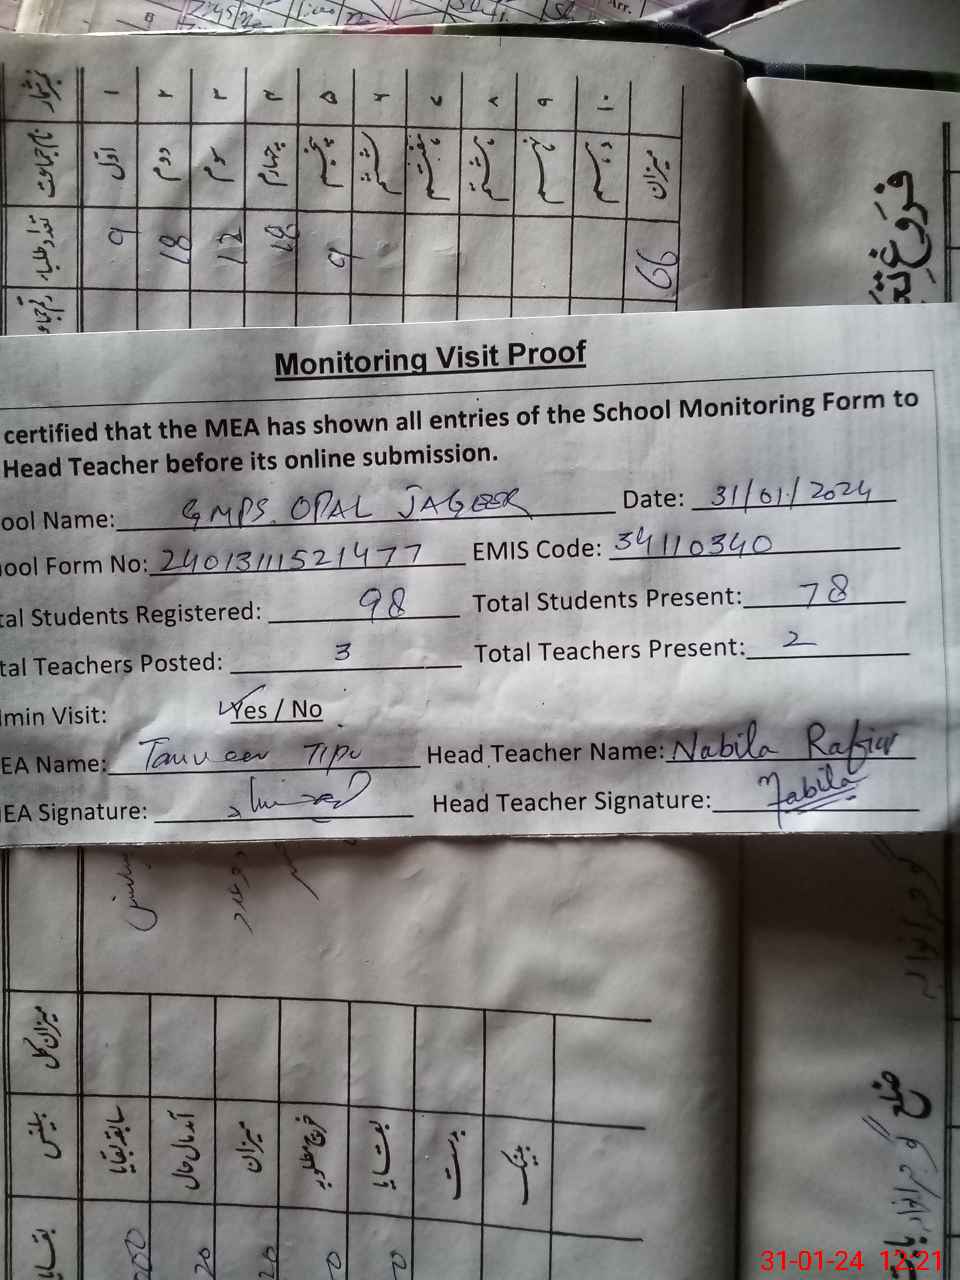 Arr.
نمبر شمار ۱ ۲ ۳ ۴ ۵ ۶ ۷ ۸ ۹ ۱۰
نام جماعت اوّل دوم سوم چہارم پنجم ششم ہفتم ہشتم نہم دہم میزان
تعداد طلباء 9 18 12 18 9 66
فروغِ
Monitoring Visit Proof
certified that the MEA has shown all entries of the School Monitoring Form to
Head Teacher before its online submission.
ool Name: GMPS. OPAL JAGEER Date: 31/01/2024
ool Form No: 24013111521477 EMIS Code: 34110340
tal Students Registered: 98 Total Students Present: 78
tal Teachers Posted: 3 Total Teachers Present: 2
min Visit: Yes / No
EA Name: Tanveer Tipu Head Teacher Name: Nabila
EA Signature: Head Teacher Signature: Nabila
میزان کل
بیلنس سابقہ بقایا آمد سال حال میزان خرچ مطلوبہ بقایا پوسٹ بینک
ضلع
31-01-24 12:21